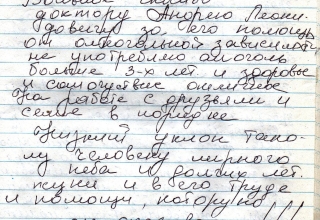 Большое спасибо
доктору Андрею Леони-
довичу за его помощь
от алкогольной зависимости
не употребляю алкоголь
больше 3-х лет и здоровье
и самочувствие отличное
На работе с друзьями и
семье в порядке
Низкий уклон тако-
му человеку мирного
неба и долгих лет.
жизни и в его труде
и помощи, которую
!!!